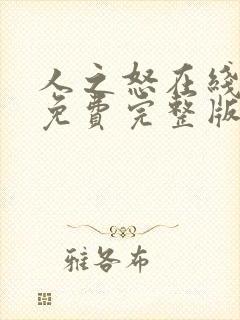 人之怒在线
免費完整版
雅各布